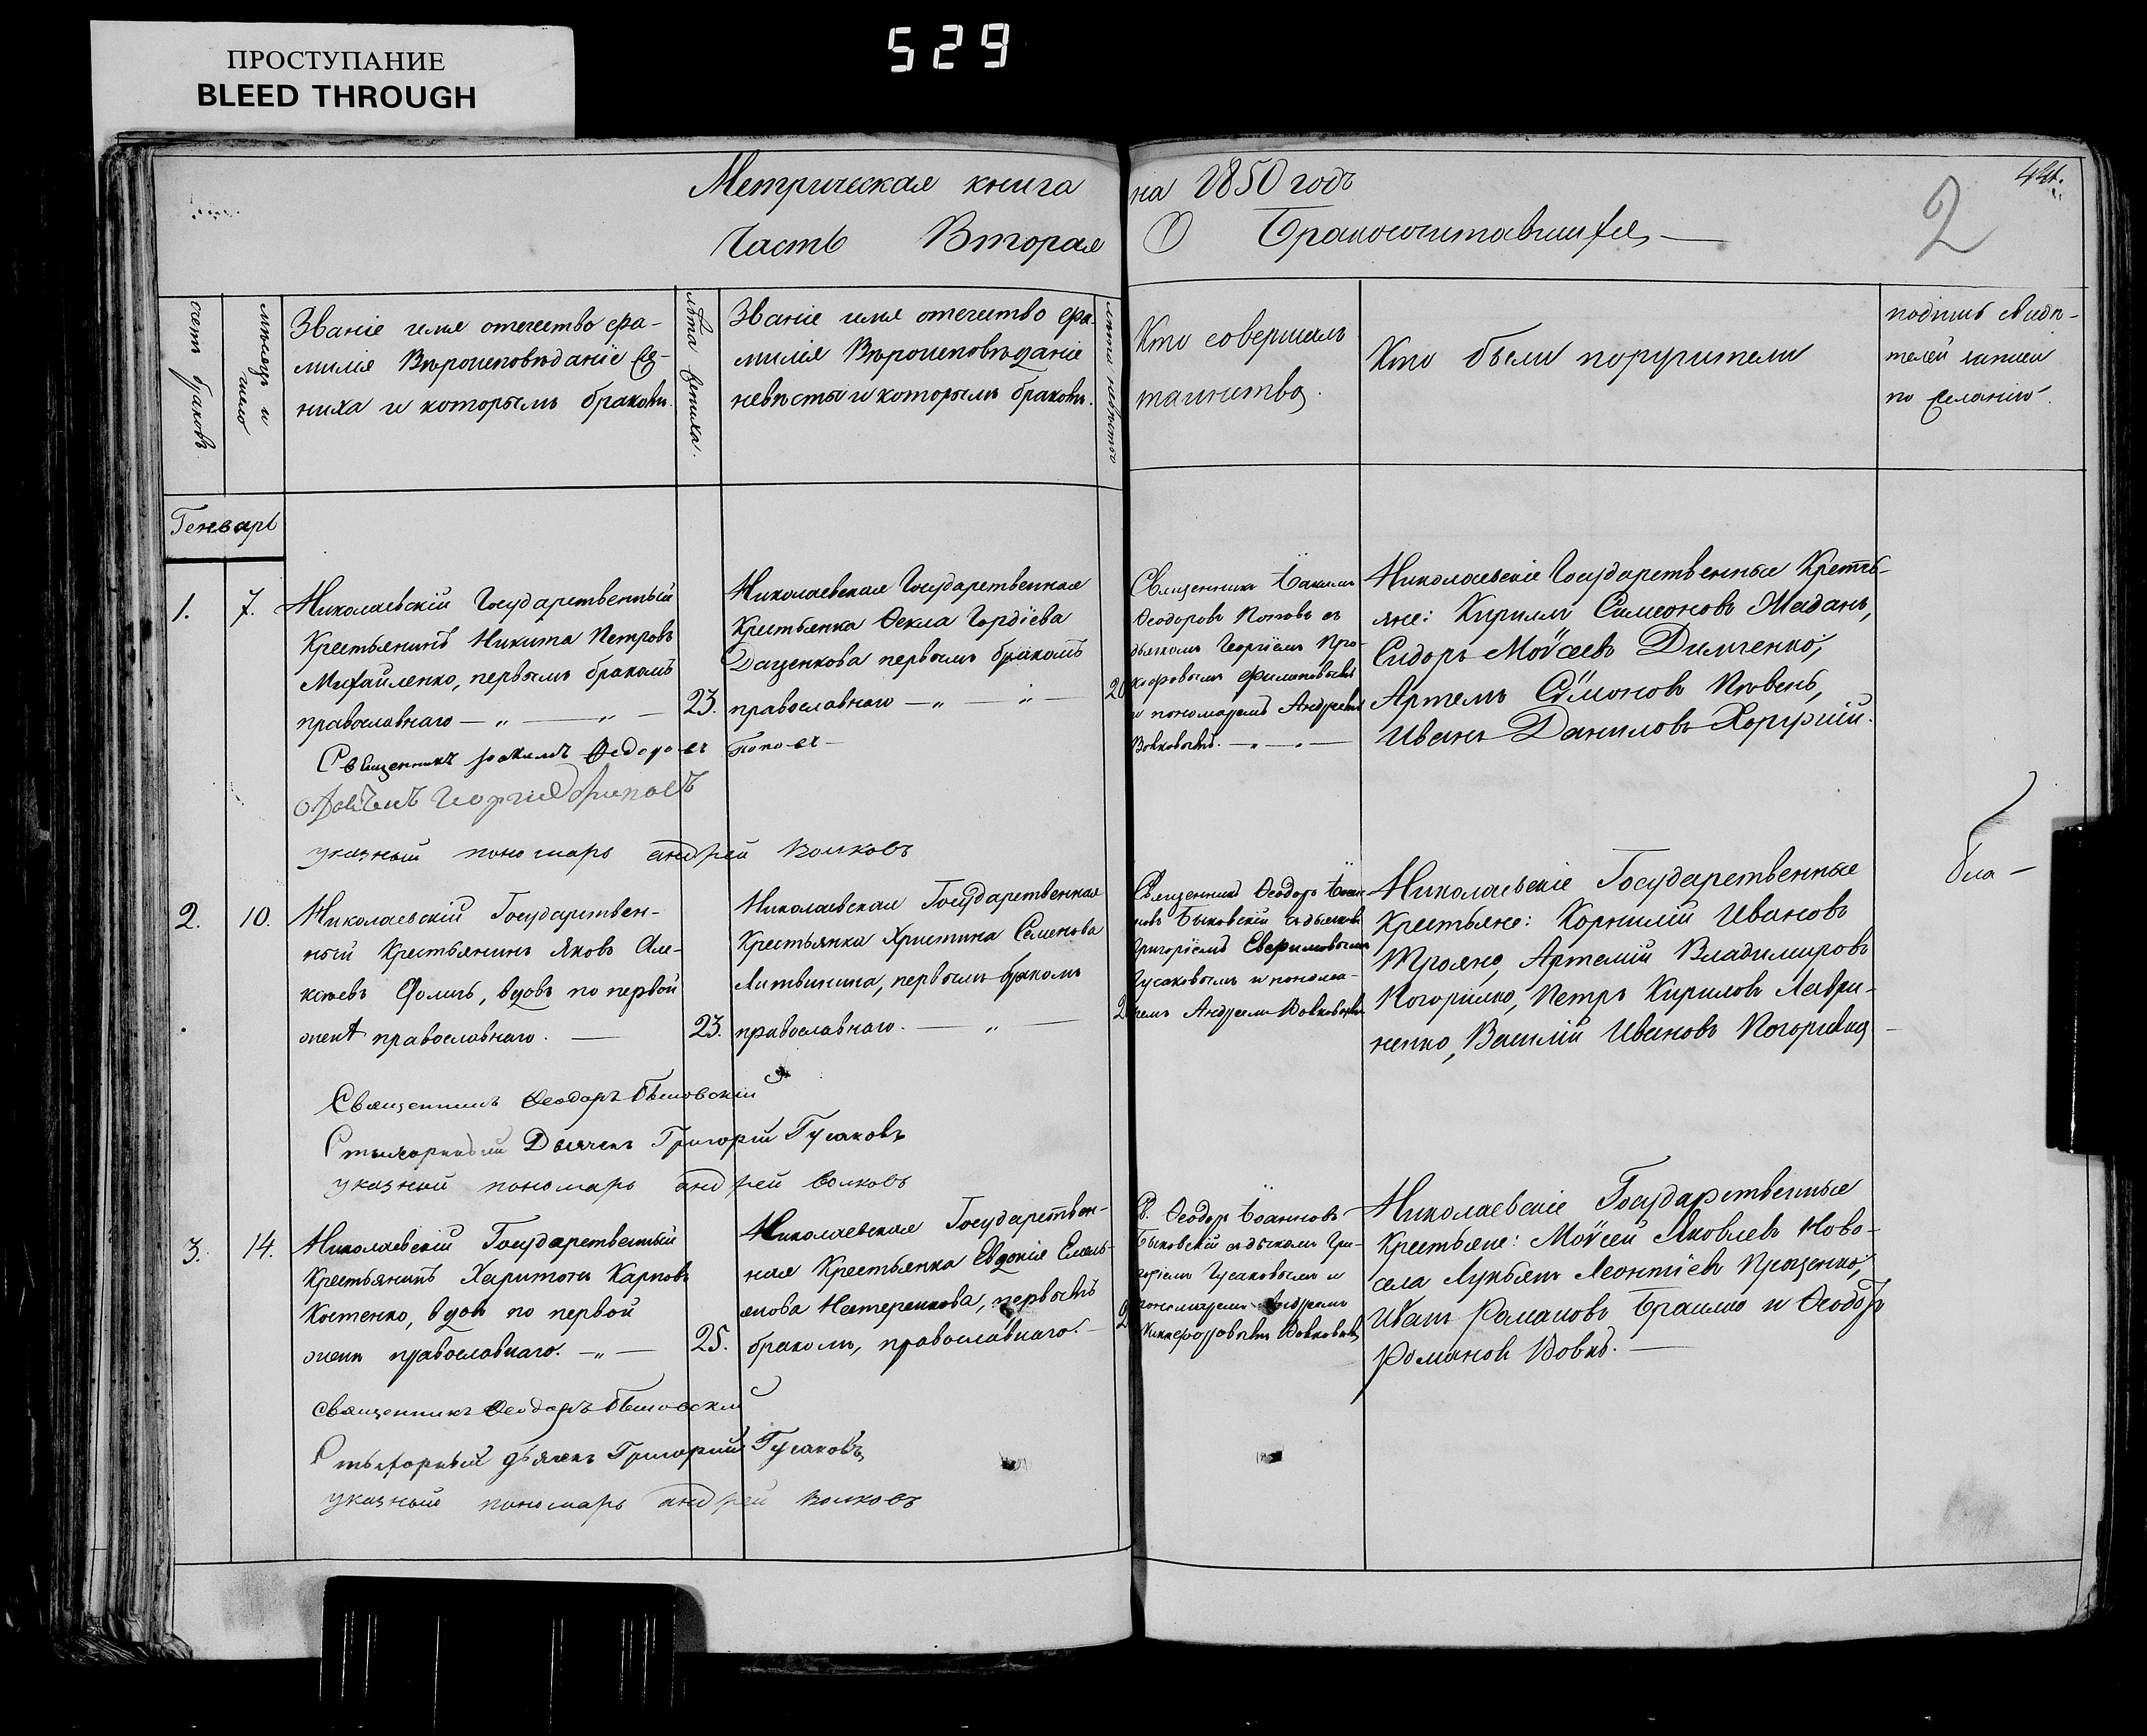 ПРОСТУПАНИЕ
BLEED THROUGH
529
Метрическая книга
на 1850 годъ
Часть Вторая
О Бракосочитавшихся
2
счетъ браковъ
мѣсяцъ и число
Званіе имя отечество фа-
милія Вѣроисповѣданіе же-
ниха и которымъ бракомъ
лѣта жениха.
Званіе имя отечество фа-
милія Вѣроисповѣданіе
невѣсты и которымъ бракомъ.
лѣта невѣсты
Кто совершалъ
таинство.
Кто были поручители
подпись свидѣ-
телей записи
по желанію.
Генварь
1.
7.
Николаевскій Государственный
Крестьянинъ Никита Петровъ
Михайленко, первымъ бракомъ
православнаго
23.
Николаевская Государственная
Крестьянка Ѳекла Гордіева
Даценкова первымъ бракомъ
православнаго
20
Священникъ Іоакимъ
Ѳеодоровъ Поповъ съ
дьякомъ Георгіемъ Про-
хоровымъ Филиповымъ
и пономаремъ Андреемъ
Волковымъ.
Николаевскіе Государственные Кресть-
яне: Кирилъ Симеоновъ Маданъ,
Сидоръ Моѵсеевъ Димченко,
Артемъ Сѵмоновъ Пѣвень,
Иванъ Даниловъ Хоружій.
Священникъ Іоакимъ Ѳедоровъ Поповъ
Георгій Филиповъ
указный пономарь андрей волковъ
2.
10.
Николаевскій Государствен-
ный Крестьянинъ Яковъ Але-
ксѣевъ Фомичъ, вдовъ по первой
женѣ православнаго.
23.
Николаевская Государственная
Крестьянка Христина Семенова
Литвинина, первымъ бракомъ
православнаго.
2
Священникъ Ѳеодоръ Іоан-
новъ Быковскій съ дьякомъ
Григоріемъ Евфимовымъ
Гусаковымъ и понома-
ремъ Андреемъ Волковымъ
Николаевскіе Государственные
Крестьяне: Корнилій Ивановъ
Трояно, Артемій Владимировъ
Погорілко, Петръ Кириловъ Лаври-
ненко, Василій Ивановъ
Священникъ Ѳеодоръ Быковскій
Стихорный Дьячекъ Григорій Гусаковъ
указный пономарь андрей волковъ
3.
14.
Николаевскій Государственный
Крестьянинъ Харитонъ Карповъ
Костенко, вдовъ по первой
женѣ православнаго.
25.
Николаевская Государствен-
ная Крестьянка Евдокія Емель-
янова Нестеренкова, первымъ
бракомъ, православнаго.
2
С. Ѳеодоръ Іоанновъ
Быковскій съ дьякомъ Гри-
горіемъ Гусаковымъ и
пономаремъ Андреемъ
Никифоровымъ Волковымъ
Николаевскіе Государственные
Крестьяне: Моѵсей Яковлевъ Ново-
села Лукьянъ Леонтіевъ Проценко,
Иванъ Романовъ Браило и Ѳеодоръ
Романовъ Вовкъ.
священникъ Ѳеодоръ Быковскій
Стихорный дьячекъ Григорій Гусаковъ
указный пономарь андрей волковъ